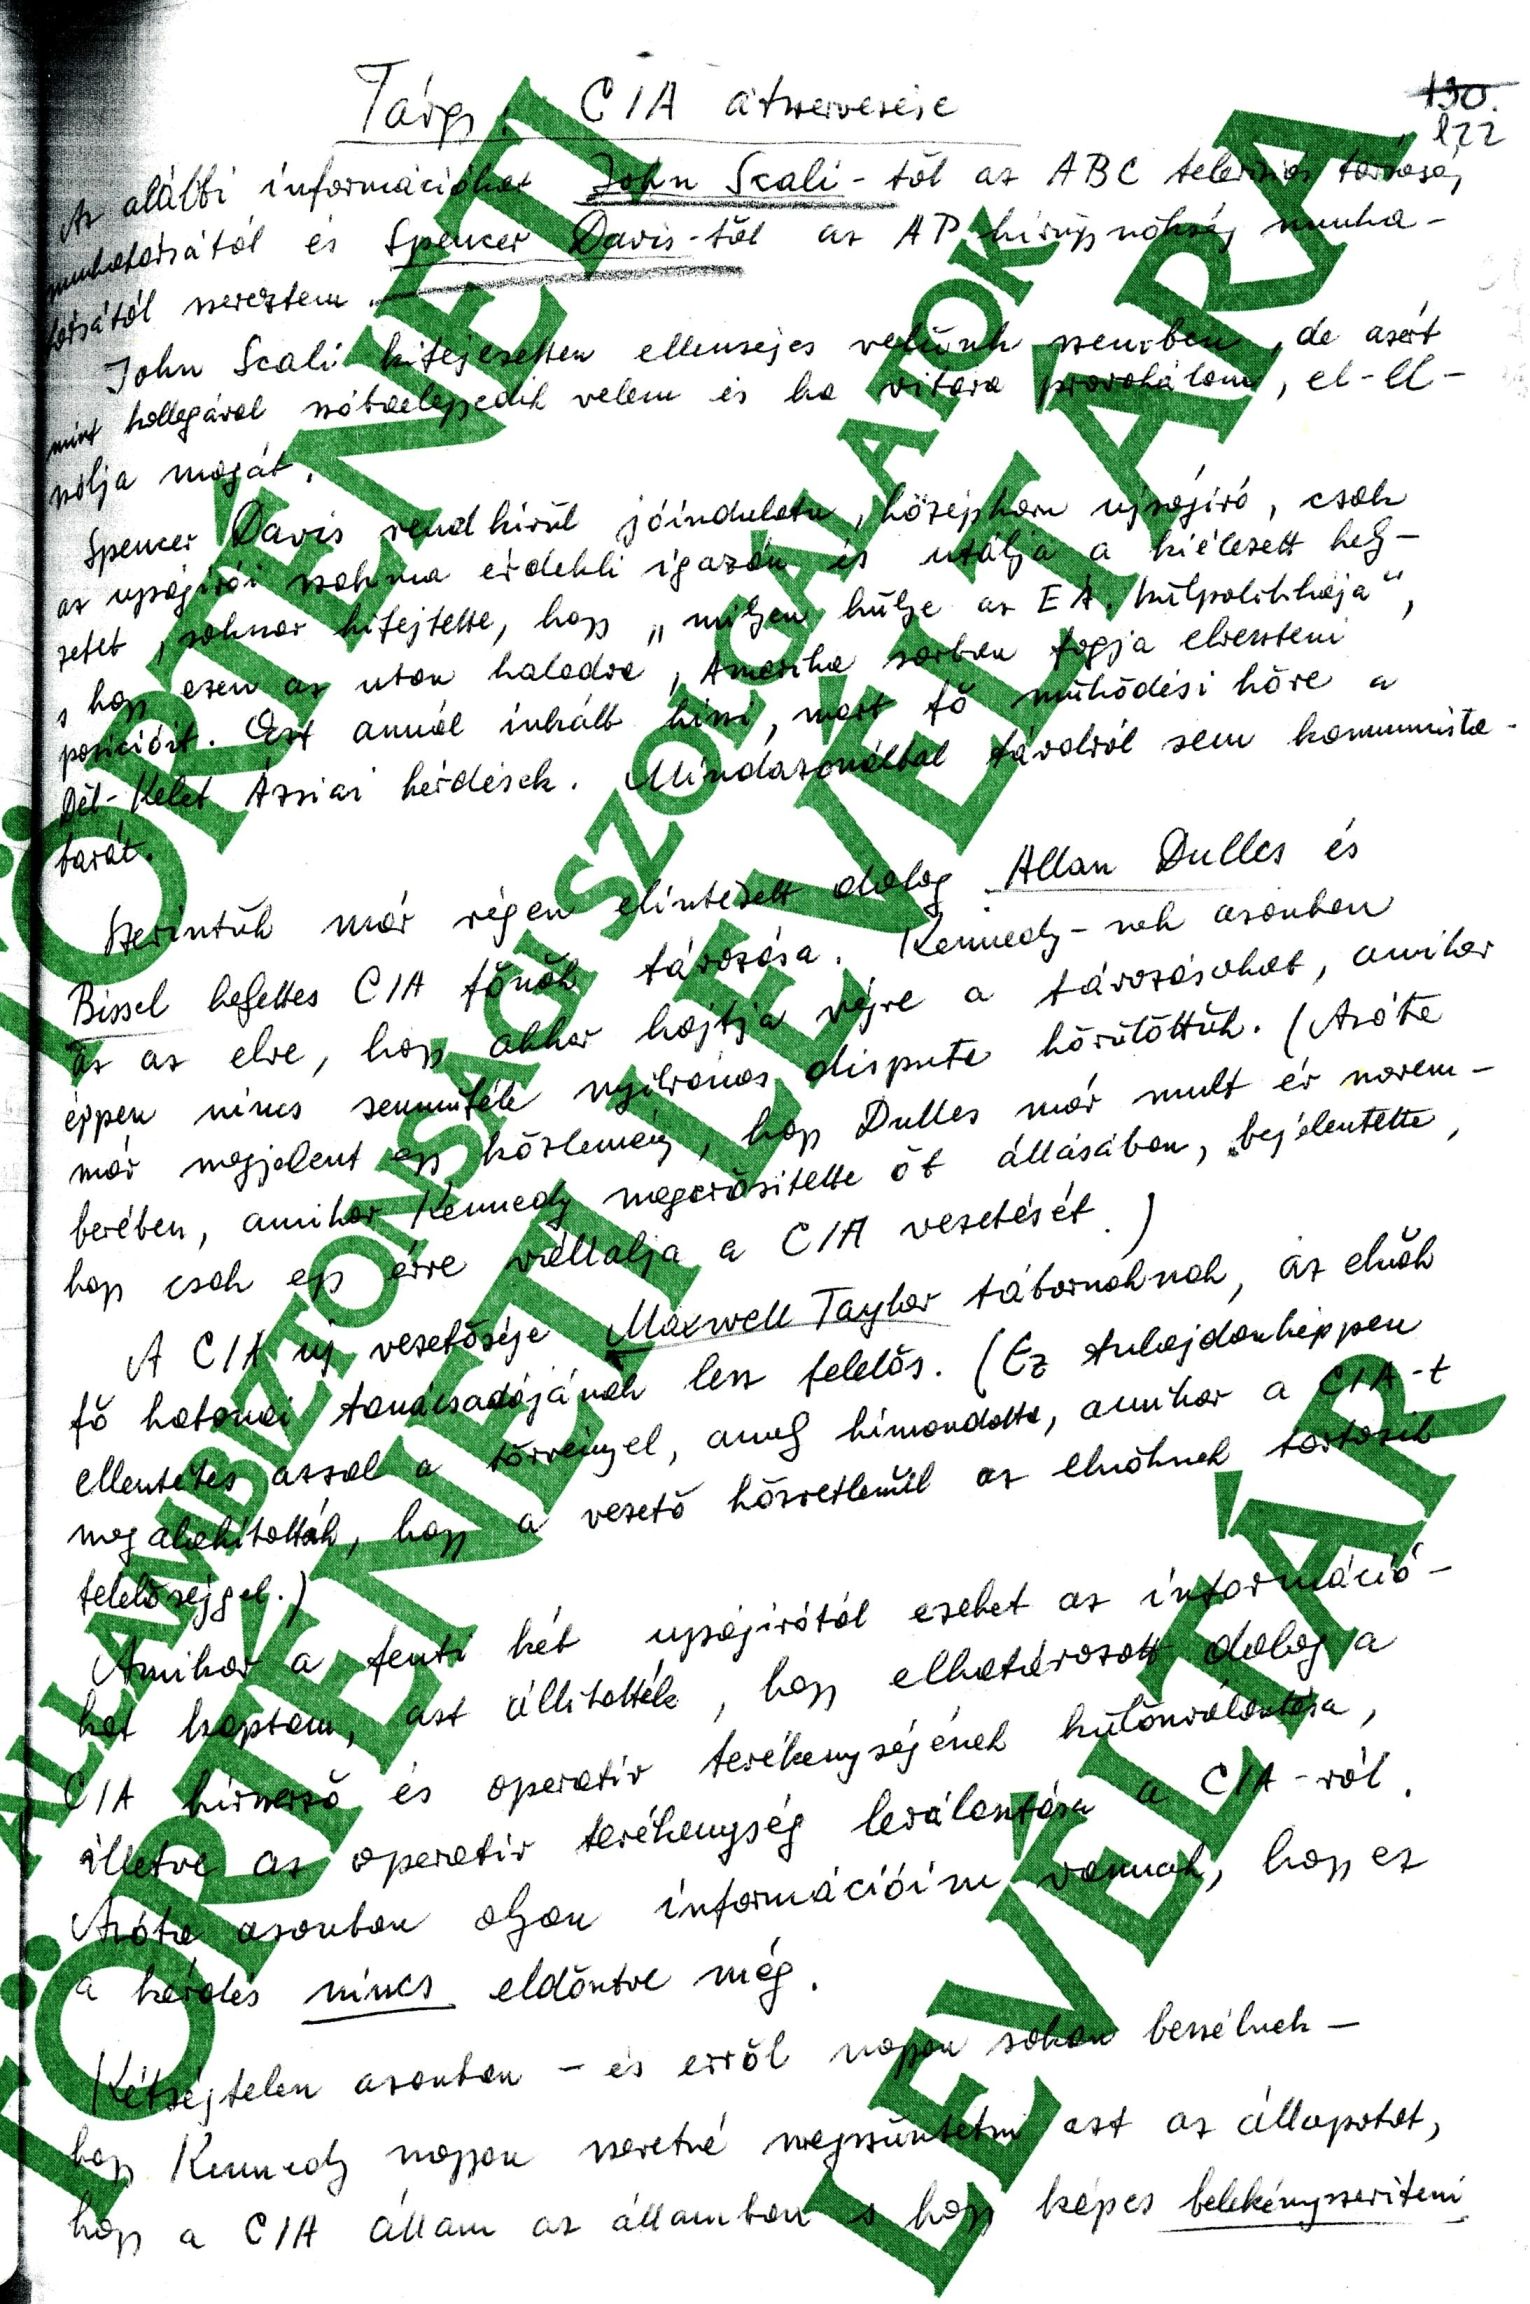 Tárgy: CIA átszervezése
130.
122
Az alábbi információkat John Scali-tól az ABC televiziós társaság
munkatársától és Spencer Davis-től az AP hírügynökség munka-
társától szereztem.
John Scali kifejezetten ellenséges velünk szemben, de azért
mint kollegával szóbaelegyedik velem és ha vitára provokálom, el-el-
szólja magát.
Spencer Davis rendkívül jóindulatu, középkoru ujságiró, csak
az ujságirói szakma érdekli igazán és utálja a kiélezett hely-
zetet, sokszor kifejtette, hogy „milyen hülye az EÁ. külpolitikája",
s hogy ezen az uton haladva, Amerika sorban fogja elveszteni
pozicióit. Ezt annál inkább hiszi, mert fő működési köre a
Dél-Kelet Ázsiai kérdések. Mindazonáltal távolról sem kommunista-
barát.
Szerintük már régen elintézett dolog Allan Dulles és
Bissel helyettes CIA főnök távozása. Kennedy-nek azonban
az az elve, hogy akkor hajtja végre a távozásokat, amikor
éppen nincs semmiféle nyilvános dispute körülöttük. (Azóta
már megjelent egy közlemény, hogy Dulles már mult év novem-
berében, amikor Kennedy megerősitette őt állásában, bejelentette,
hogy csak egy évre vállalja a CIA vezetését.)
A CIA új vezetősége Maxwell Taylor tábornoknak, az elnök
fő katonai tanácsadójának lesz felelős. (Ez tulajdonképpen
ellentétes azzal a törvénnyel, amely kimondotta, amikor a CIA-t
megalakitották, hogy a vezető közvetlenül az elnöknek tartozik
felelőséggel.)
Amikor a fenti két ujságirótól ezeket az információ-
kat kaptam, azt állitották, hogy elhatározott dolog a
CIA hírszerző és operativ tevékenységének különválasztása,
illetve az operativ tevékenység leválasztása a CIA-ról.
Azóta azonban olyan információim vannak, hogy ez
a kérdés nincs eldöntve még.
Kétségtelen azonban – és erről nagyon sokan beszélnek –
hogy Kennedy nagyon szeretné megszüntetni azt az állapotot,
hogy a CIA állam az államban s hogy képes belekényszeriteni
ÁLLAMBIZTONSÁGI SZOLGÁLATOK
TÖRTÉNETI LEVÉLTÁRA
TÖRTÉNETI LEVÉLTÁR